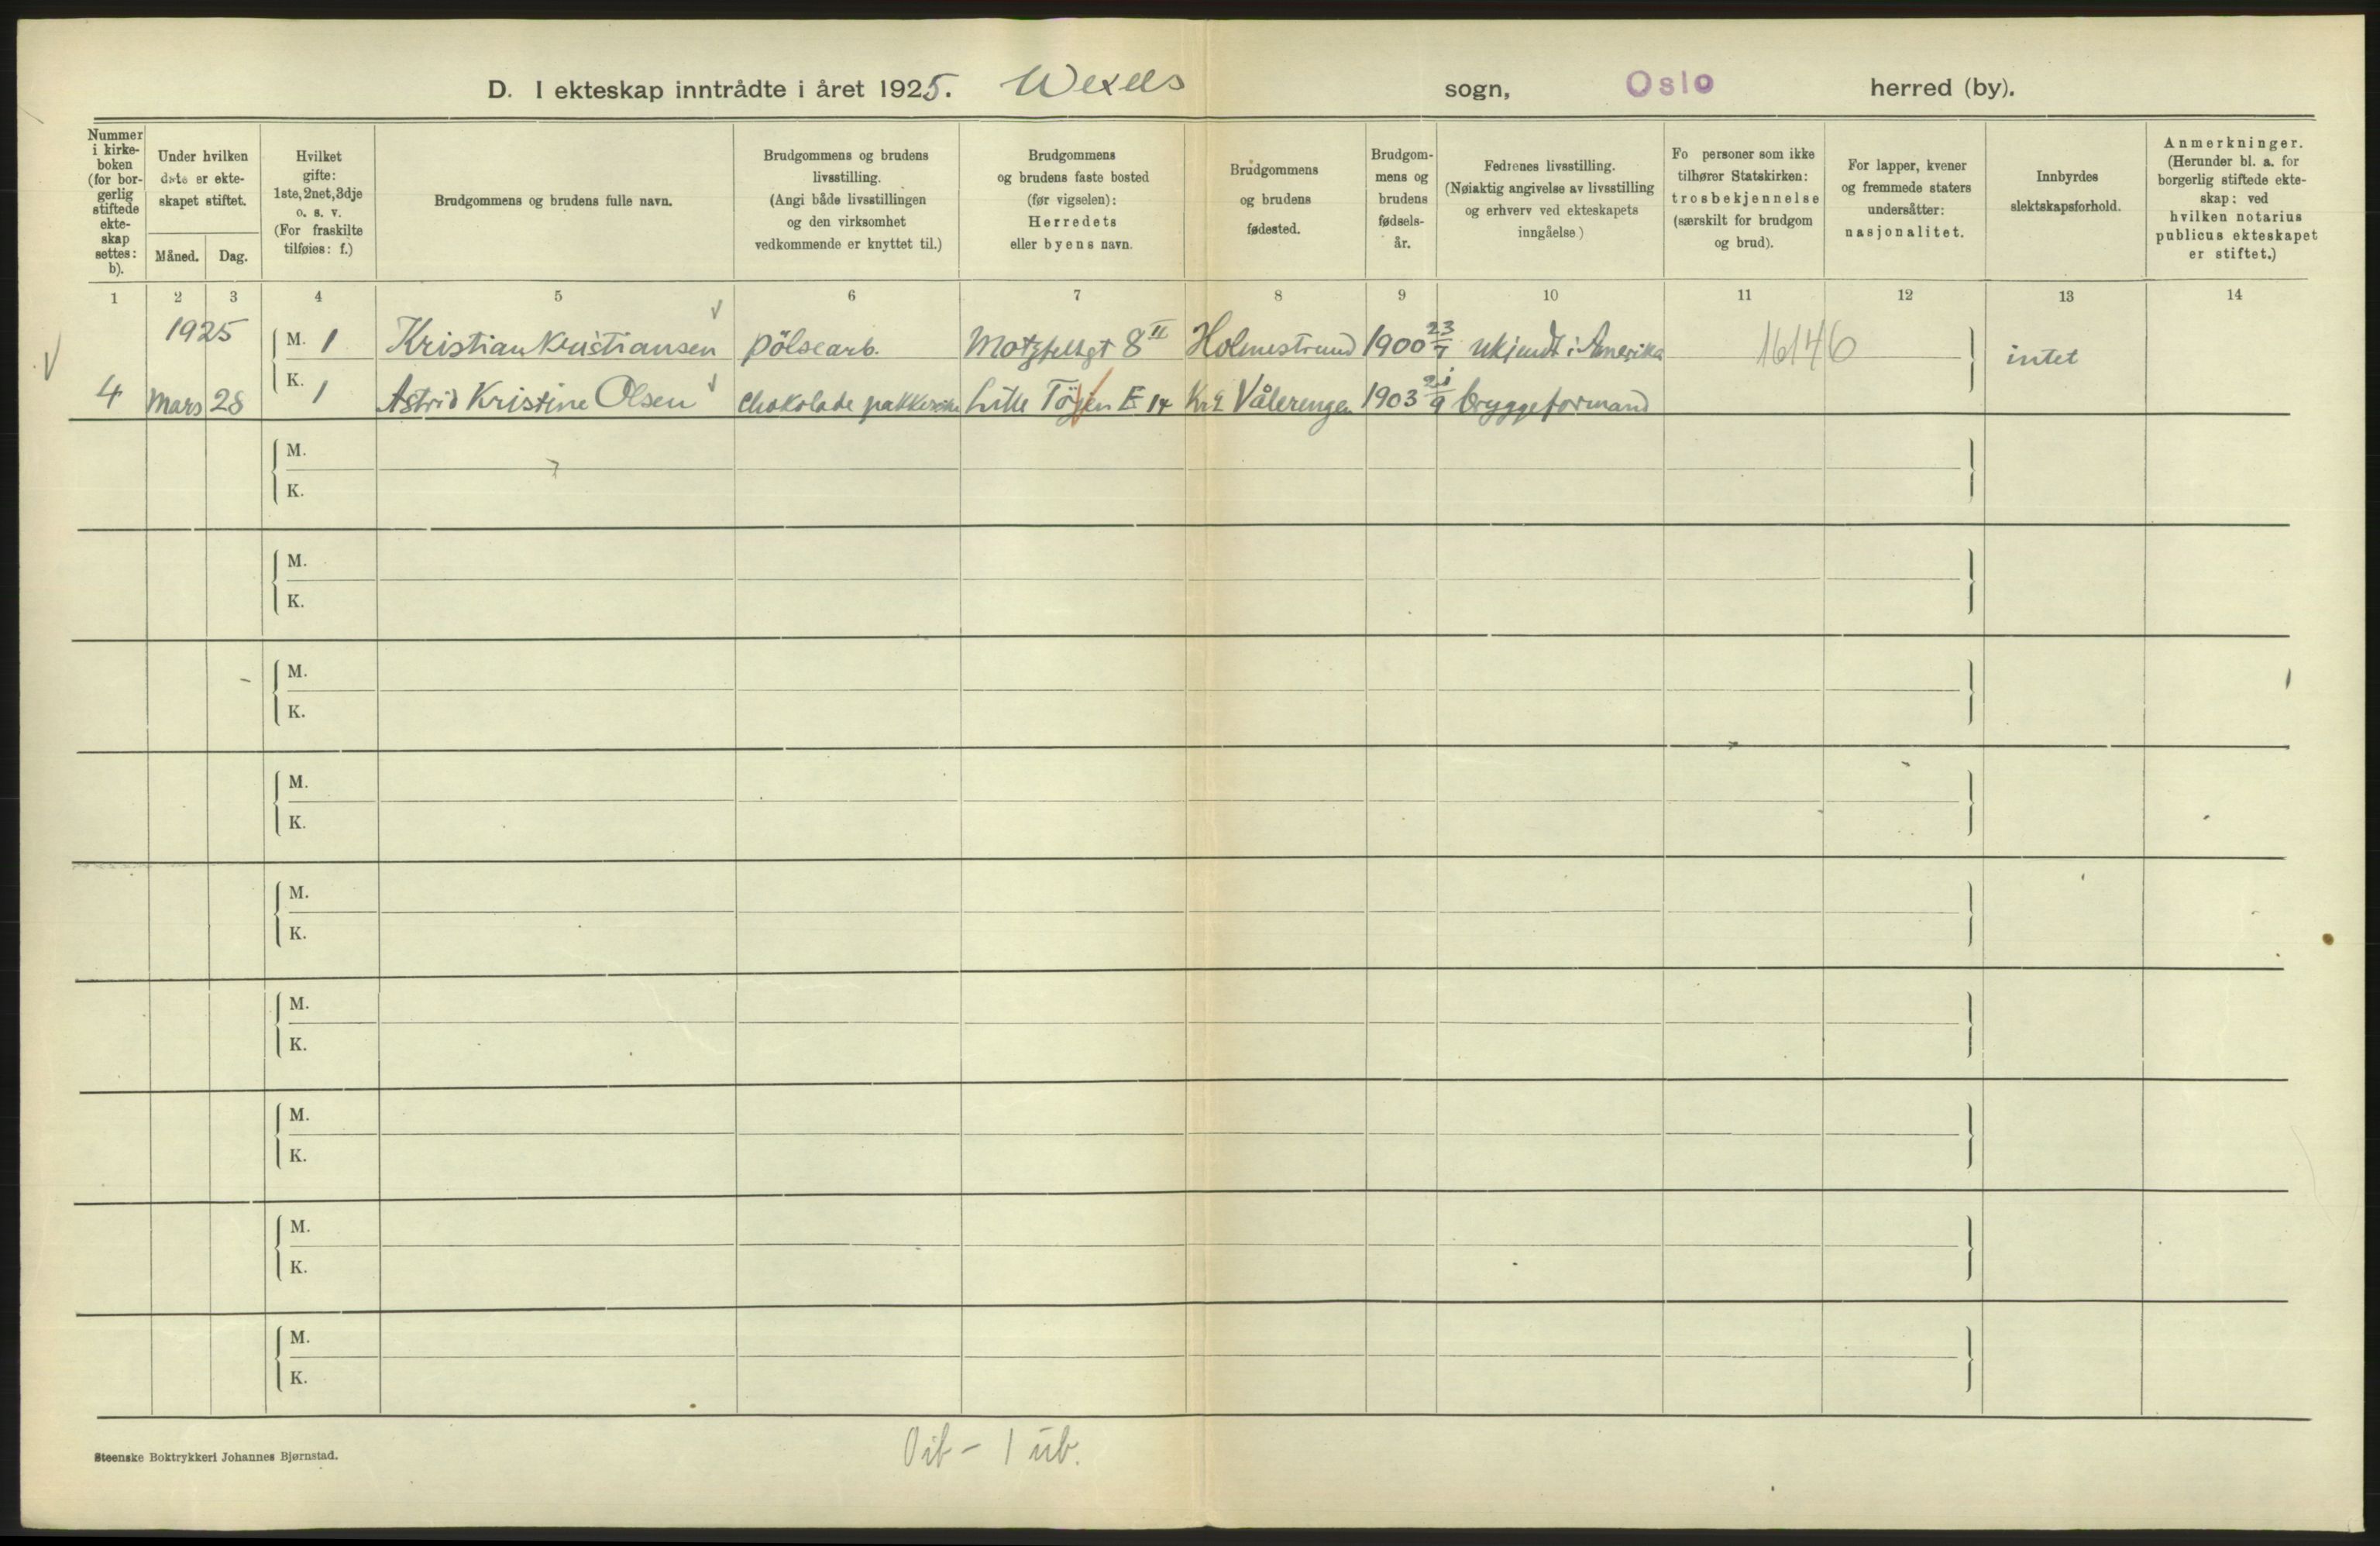 D. I ekteskap inntrådte i året 1925. Wexels sogn, Oslo herred (by).
Nummer i kirke-boken (for bor-gerlig stiftede ekte-skap settes: b).
Under hvilken dato er ekte-skapet stiftet.
Måned. Dag.
Hvilket gifte: 1ste, 2net, 3dje o. s. v. (For fraskilte tilføies: f.)
Brudgommens og brudens fulle navn.
Brudgommens og brudens livsstilling. (Angi både livsstillingen og den virksomhet vedkommende er knyttet til.)
Brudgommens og brudens faste bosted (før vigselen): Herredets eller byens navn.
Brudgommens og brudens fødested.
Brudgom-mens og brudens fødsels-år.
Fedrenes livsstilling. (Nøiaktig angivelse av livsstilling og erhverv ved ekteskapets inngåelse.)
Fo personer som ikke tilhører Statskirken: trosbekjennelse (særskilt for brudgom og brud).
For lapper, kvener og fremmede staters undersåtter: nasjonalitet.
Innbyrdes slektskapsforhold.
Anmerkninger. (Herunder bl. a. for borgerlig stiftede ekte-skap: ved hvilken notarius publicus ekteskapet er stiftet.)
1 2 3 4 5 6 7 8 9 10 11 12 13 14
1925 M. 1 Kristian Kristiansen pölsearb. Motzfeldtgt 8 II Holmestrand 1900 23/7 ukjendt i Amerika 16146 intet
4 Mars 28 K. 1 Astrid Kristine Olsen chokolade pakkerske Lille Töyen E 14 Vålerengen 1903 21/9 bryggeformand
M.
K.
M.
K.
M.
K.
M.
K.
M.
K.
M.
K.
M.
K.
M.
K.
M.
K.
Steenske Boktrykkeri Johannes Bjørnstad.
1 ub.